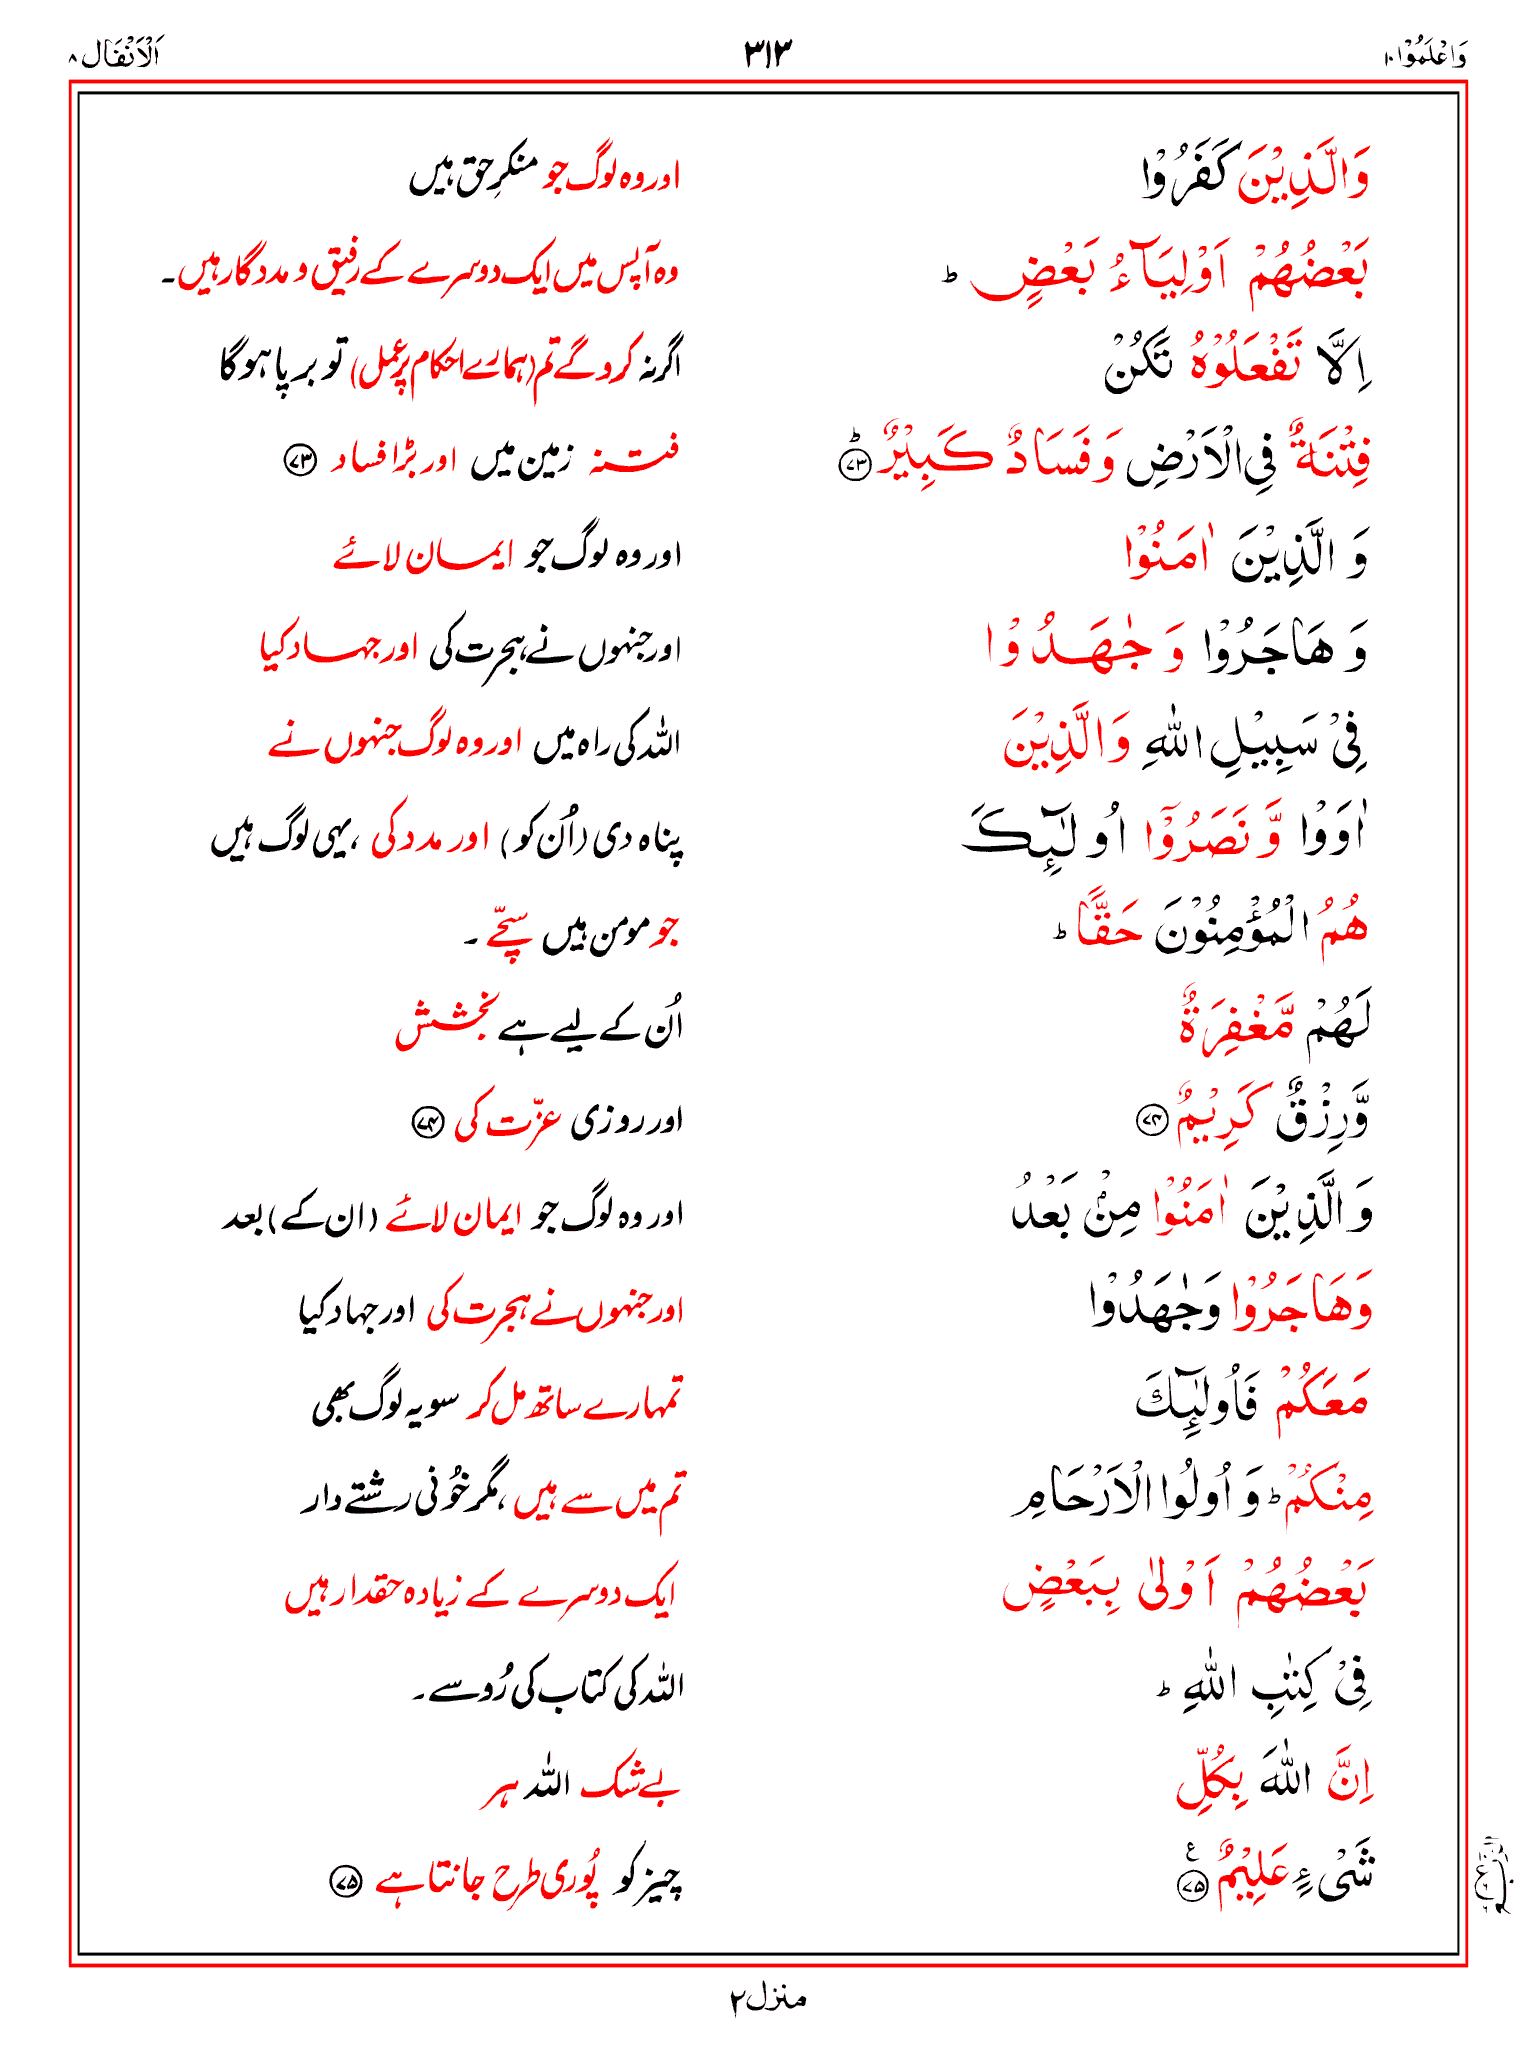 وَاعْلَمُوْۤا ۱۰ ۳۱۳ اَلْاَنْفَال ۸
وَالَّذِيْنَ كَفَرُوْا اور وہ لوگ جو منکرِحق ہیں
بَعْضُهُمْ اَوْلِيَآءُ بَعْضٍ ؕ وہ آپس میں ایک دوسرے کے رفیق و مددگار ہیں۔
اِلَّا تَفْعَلُوْهُ تَكُنْ اگر نہ کرو گے تم (ہمارے احکام پر عمل) تو برپا ہوگا
فِتْنَةٌ فِي الْاَرْضِ وَ فَسَادٌ كَبِيْرٌ ؕ ﴿۷۳﴾ فتنہ زمین میں اور بڑا فساد ﴿۷۳﴾
وَ الَّذِيْنَ اٰمَنُوْا اور وہ لوگ جو ایمان لائے
وَ هَاجَرُوْا وَ جٰهَدُوْا اور جنہوں نے ہجرت کی اور جہاد کیا
فِيْ سَبِيْلِ اللّٰهِ وَالَّذِيْنَ اللہ کی راہ میں اور وہ لوگ جنہوں نے
اٰوَوْا وَّ نَصَرُوْۤا اُولٰٓئِكَ پناہ دی (اُن کو) اور مدد کی ، یہی لوگ ہیں
هُمُ الْمُؤْمِنُوْنَ حَقًّا ؕ جو مومن ہیں سچّے ۔
لَهُمْ مَّغْفِرَةٌ اُن کے لیے ہے بخشش
وَّرِزْقٌ كَرِيْمٌ ﴿۷۴﴾ اور روزی عزّت کی ﴿۷۴﴾
وَ الَّذِيْنَ اٰمَنُوْا مِنْۢ بَعْدُ اور وہ لوگ جو ایمان لائے (ان کے) بعد
وَهَاجَرُوْا وَجٰهَدُوْا اور جنہوں نے ہجرت کی اور جہاد کیا
مَعَكُمْ فَاُولٰٓئِكَ تمہارے ساتھ مل کر سو یہ لوگ بھی
مِنْكُمْ ؕ وَ اُولُوا الْاَرْحَامِ تم میں سے ہیں ، مگر خُونی رشتے دار
بَعْضُهُمْ اَوْلٰى بِبَعْضٍ ایک دوسرے کے زیادہ حقدار ہیں
فِيْ كِتٰبِ اللّٰهِ ؕ اللہ کی کتاب کی رُو سے ۔
اِنَّ اللّٰهَ بِكُلِّ بے شک اللہ ہر
شَيْءٍ عَلِيْمٌ ﴿۷۵﴾ ع چیز کو پُوری طرح جانتا ہے ﴿۷۵﴾
منزل ۲